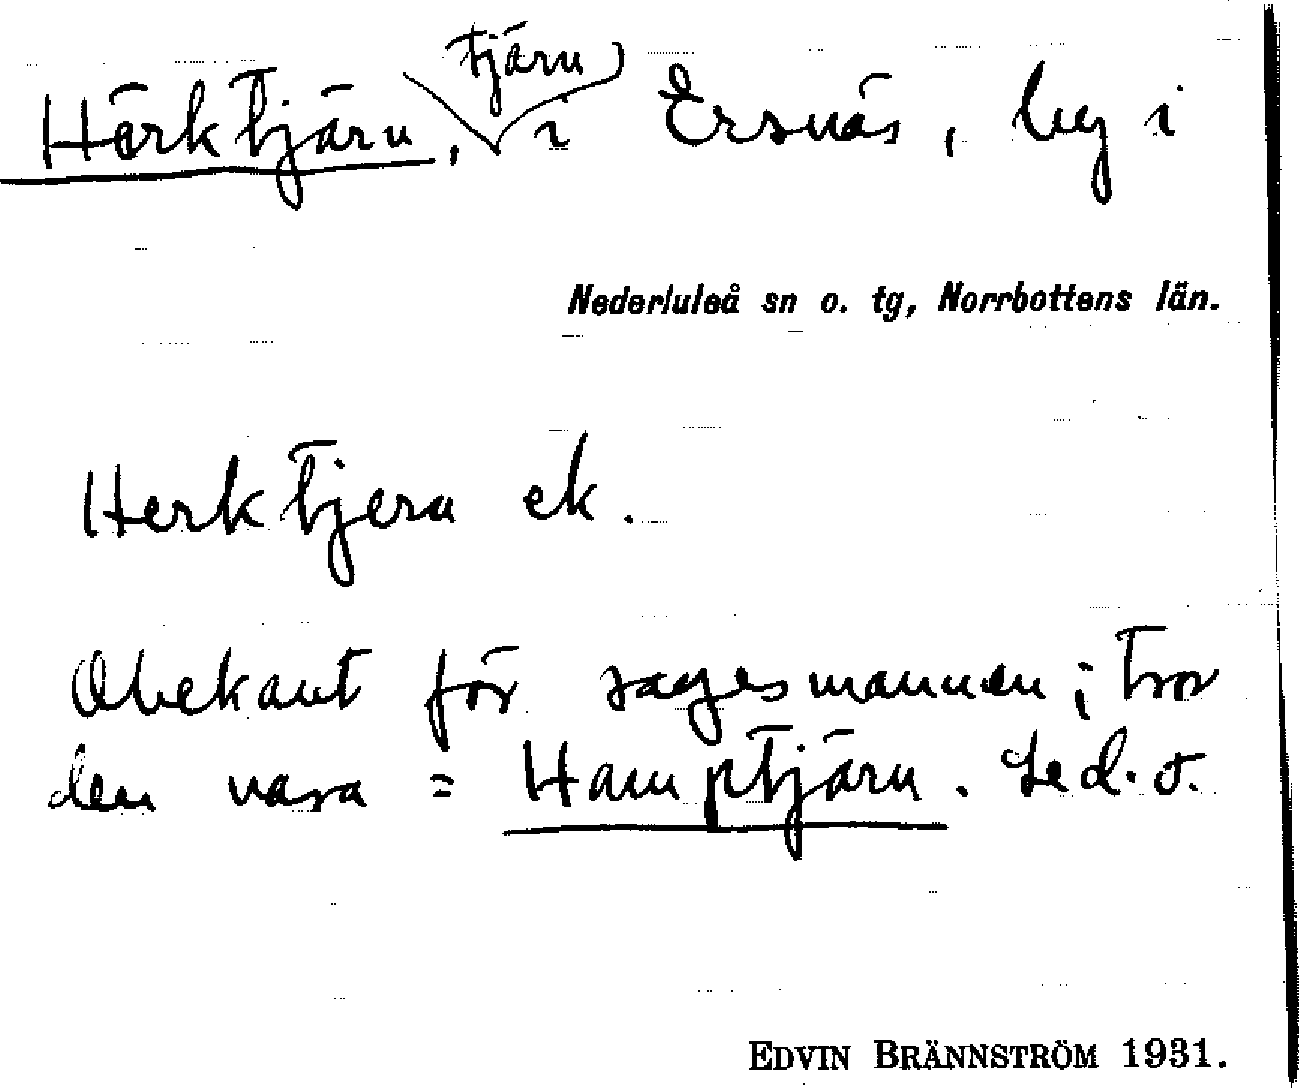 Härktjärn, tjärn i Ersnäs, by i
Nederluleå sn o. tg, Norrbottens län.
Herktjern ek.
Obekant för sagesmannen; tror
den vara = Hamptjärn. Se d. o.
EDVIN BRÄNNSTRÖM 1931.